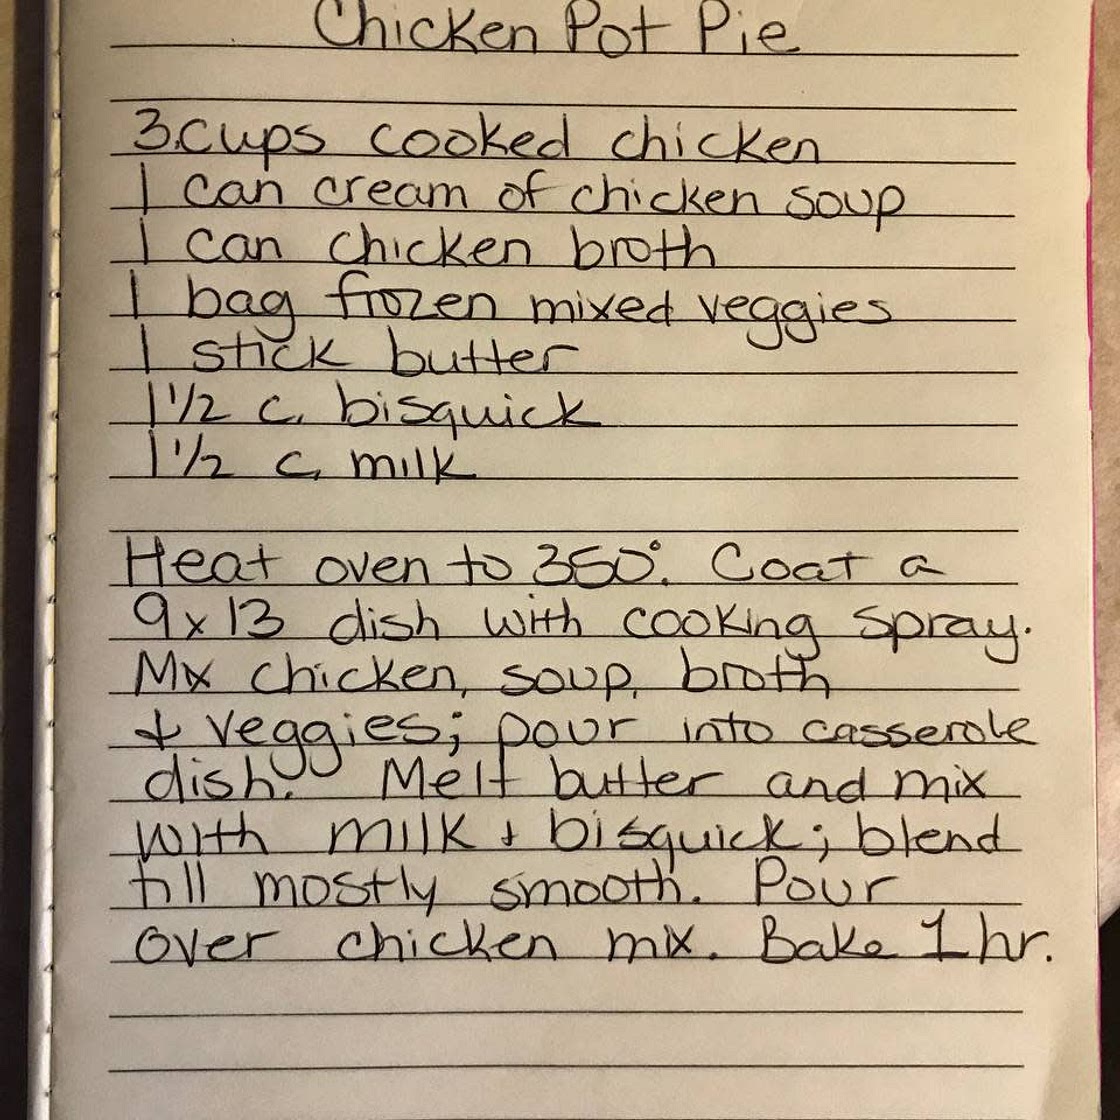 Chicken Pot Pie
3 cups cooked chicken
1 can cream of chicken soup
1 can chicken broth
1 bag frozen mixed veggies
1 stick butter
1 1/2 c. bisquick
1 1/2 c. milk
Heat oven to 350°. Coat a
9x13 dish with cooking spray.
Mix chicken, soup, broth
& veggies; pour into casserole
dish. Melt butter and mix
with milk & bisquick; blend
till mostly smooth. Pour
over chicken mix. Bake 1 hr.